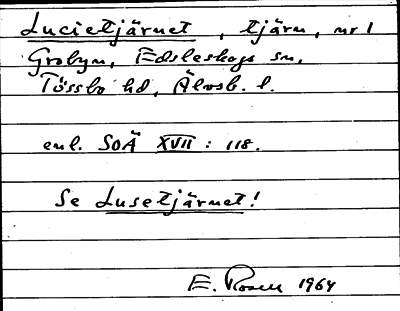 Lucietjärnet, tjärn, nr 1
Grobyn, Edsleskogs sn,
Tössbo hd, Älvsb. l.
enl. SOÄ XVII : 118.
Se Lusetjärnet!
E. Rosen 1964